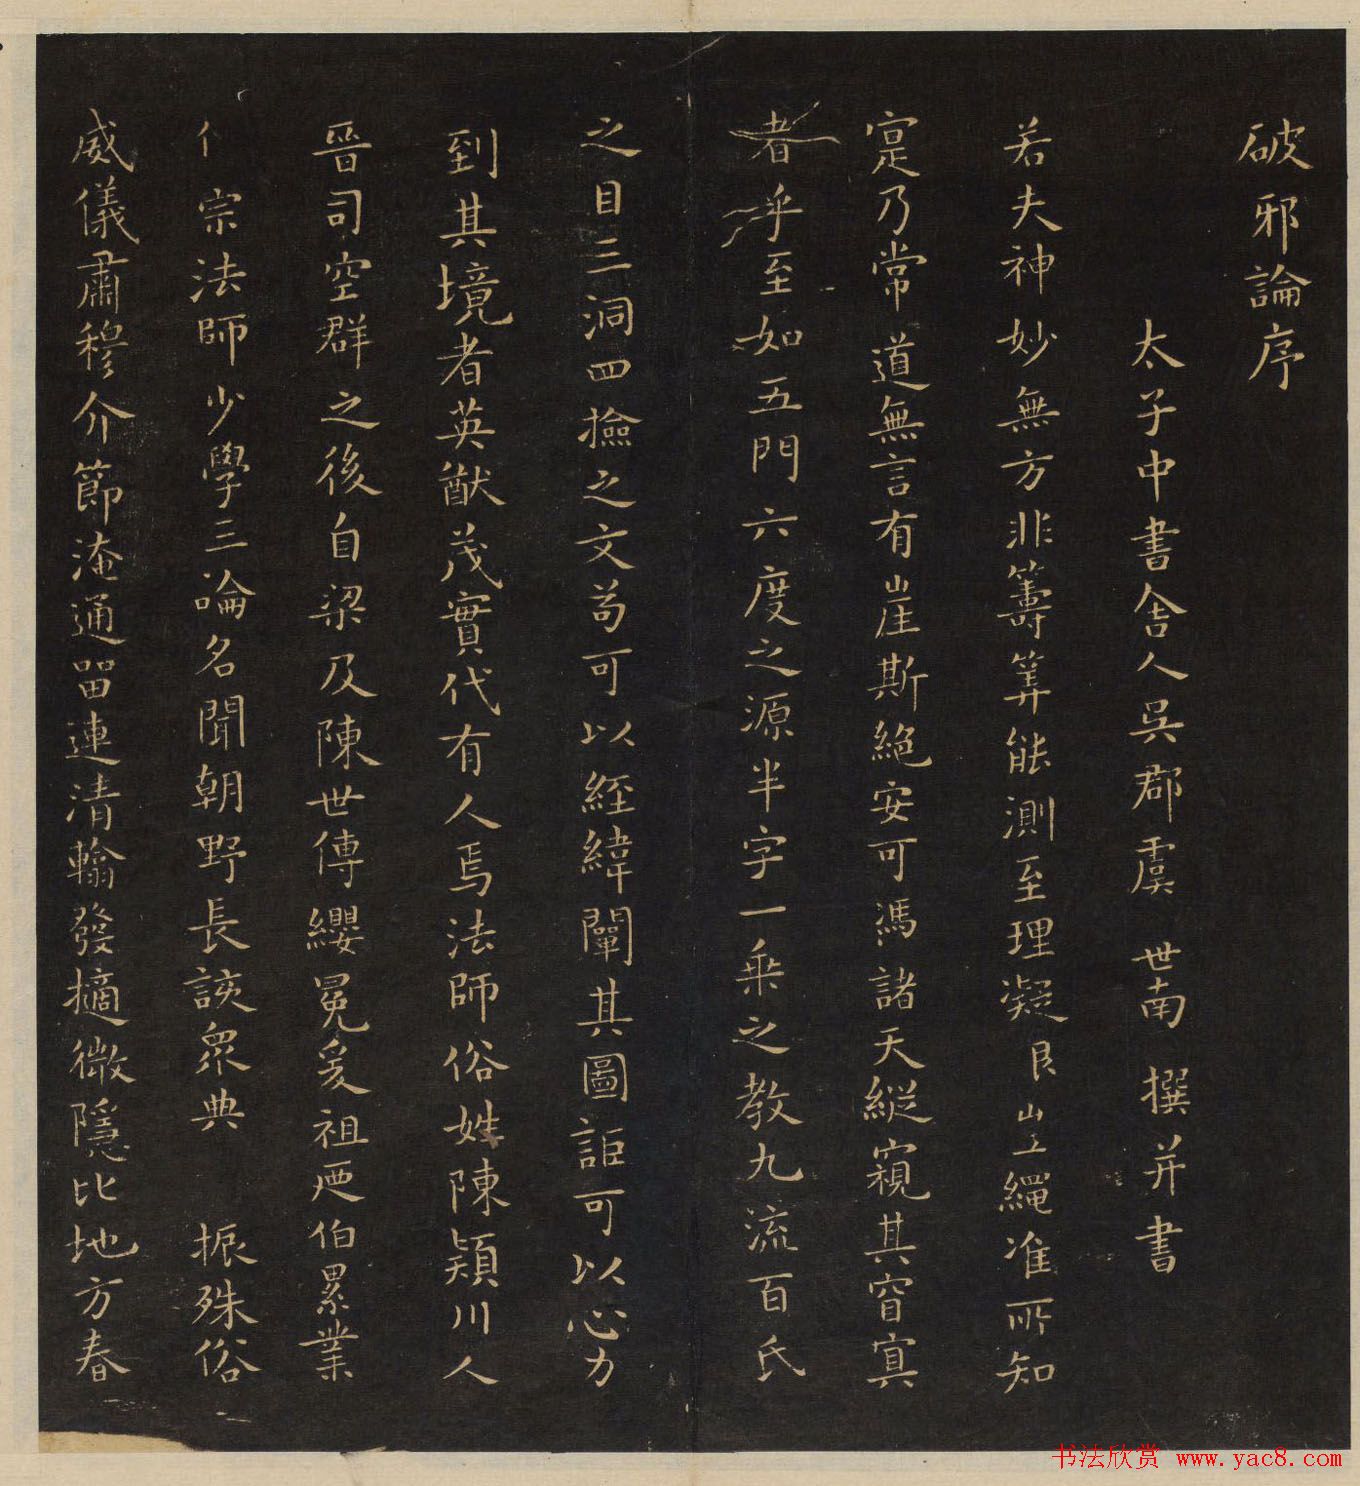 破邪論序
太子中書舍人吳郡虞世南撰并書
若夫神妙無方非籌筭能測至理凝𠃊繩准所知
寔乃常道無言有崖斯絕安可馮諸天縱窺其窅寘
者乎至如五門六度之源半字一乘之教九流百氏
之目三洞四撿之文苟可以經緯闡其圖詎可以心力
到其境者英猷茂實代有人焉法師俗姓陳潁川人
晉司空群之後自梁及陳世傳纓冕爰祖迺伯累業
宗法師少學三論名聞朝野長該眾典 振殊俗
威儀肅穆介節淹通留連清翰發摘微隱比地方春
书法欣赏 www.yac8.com